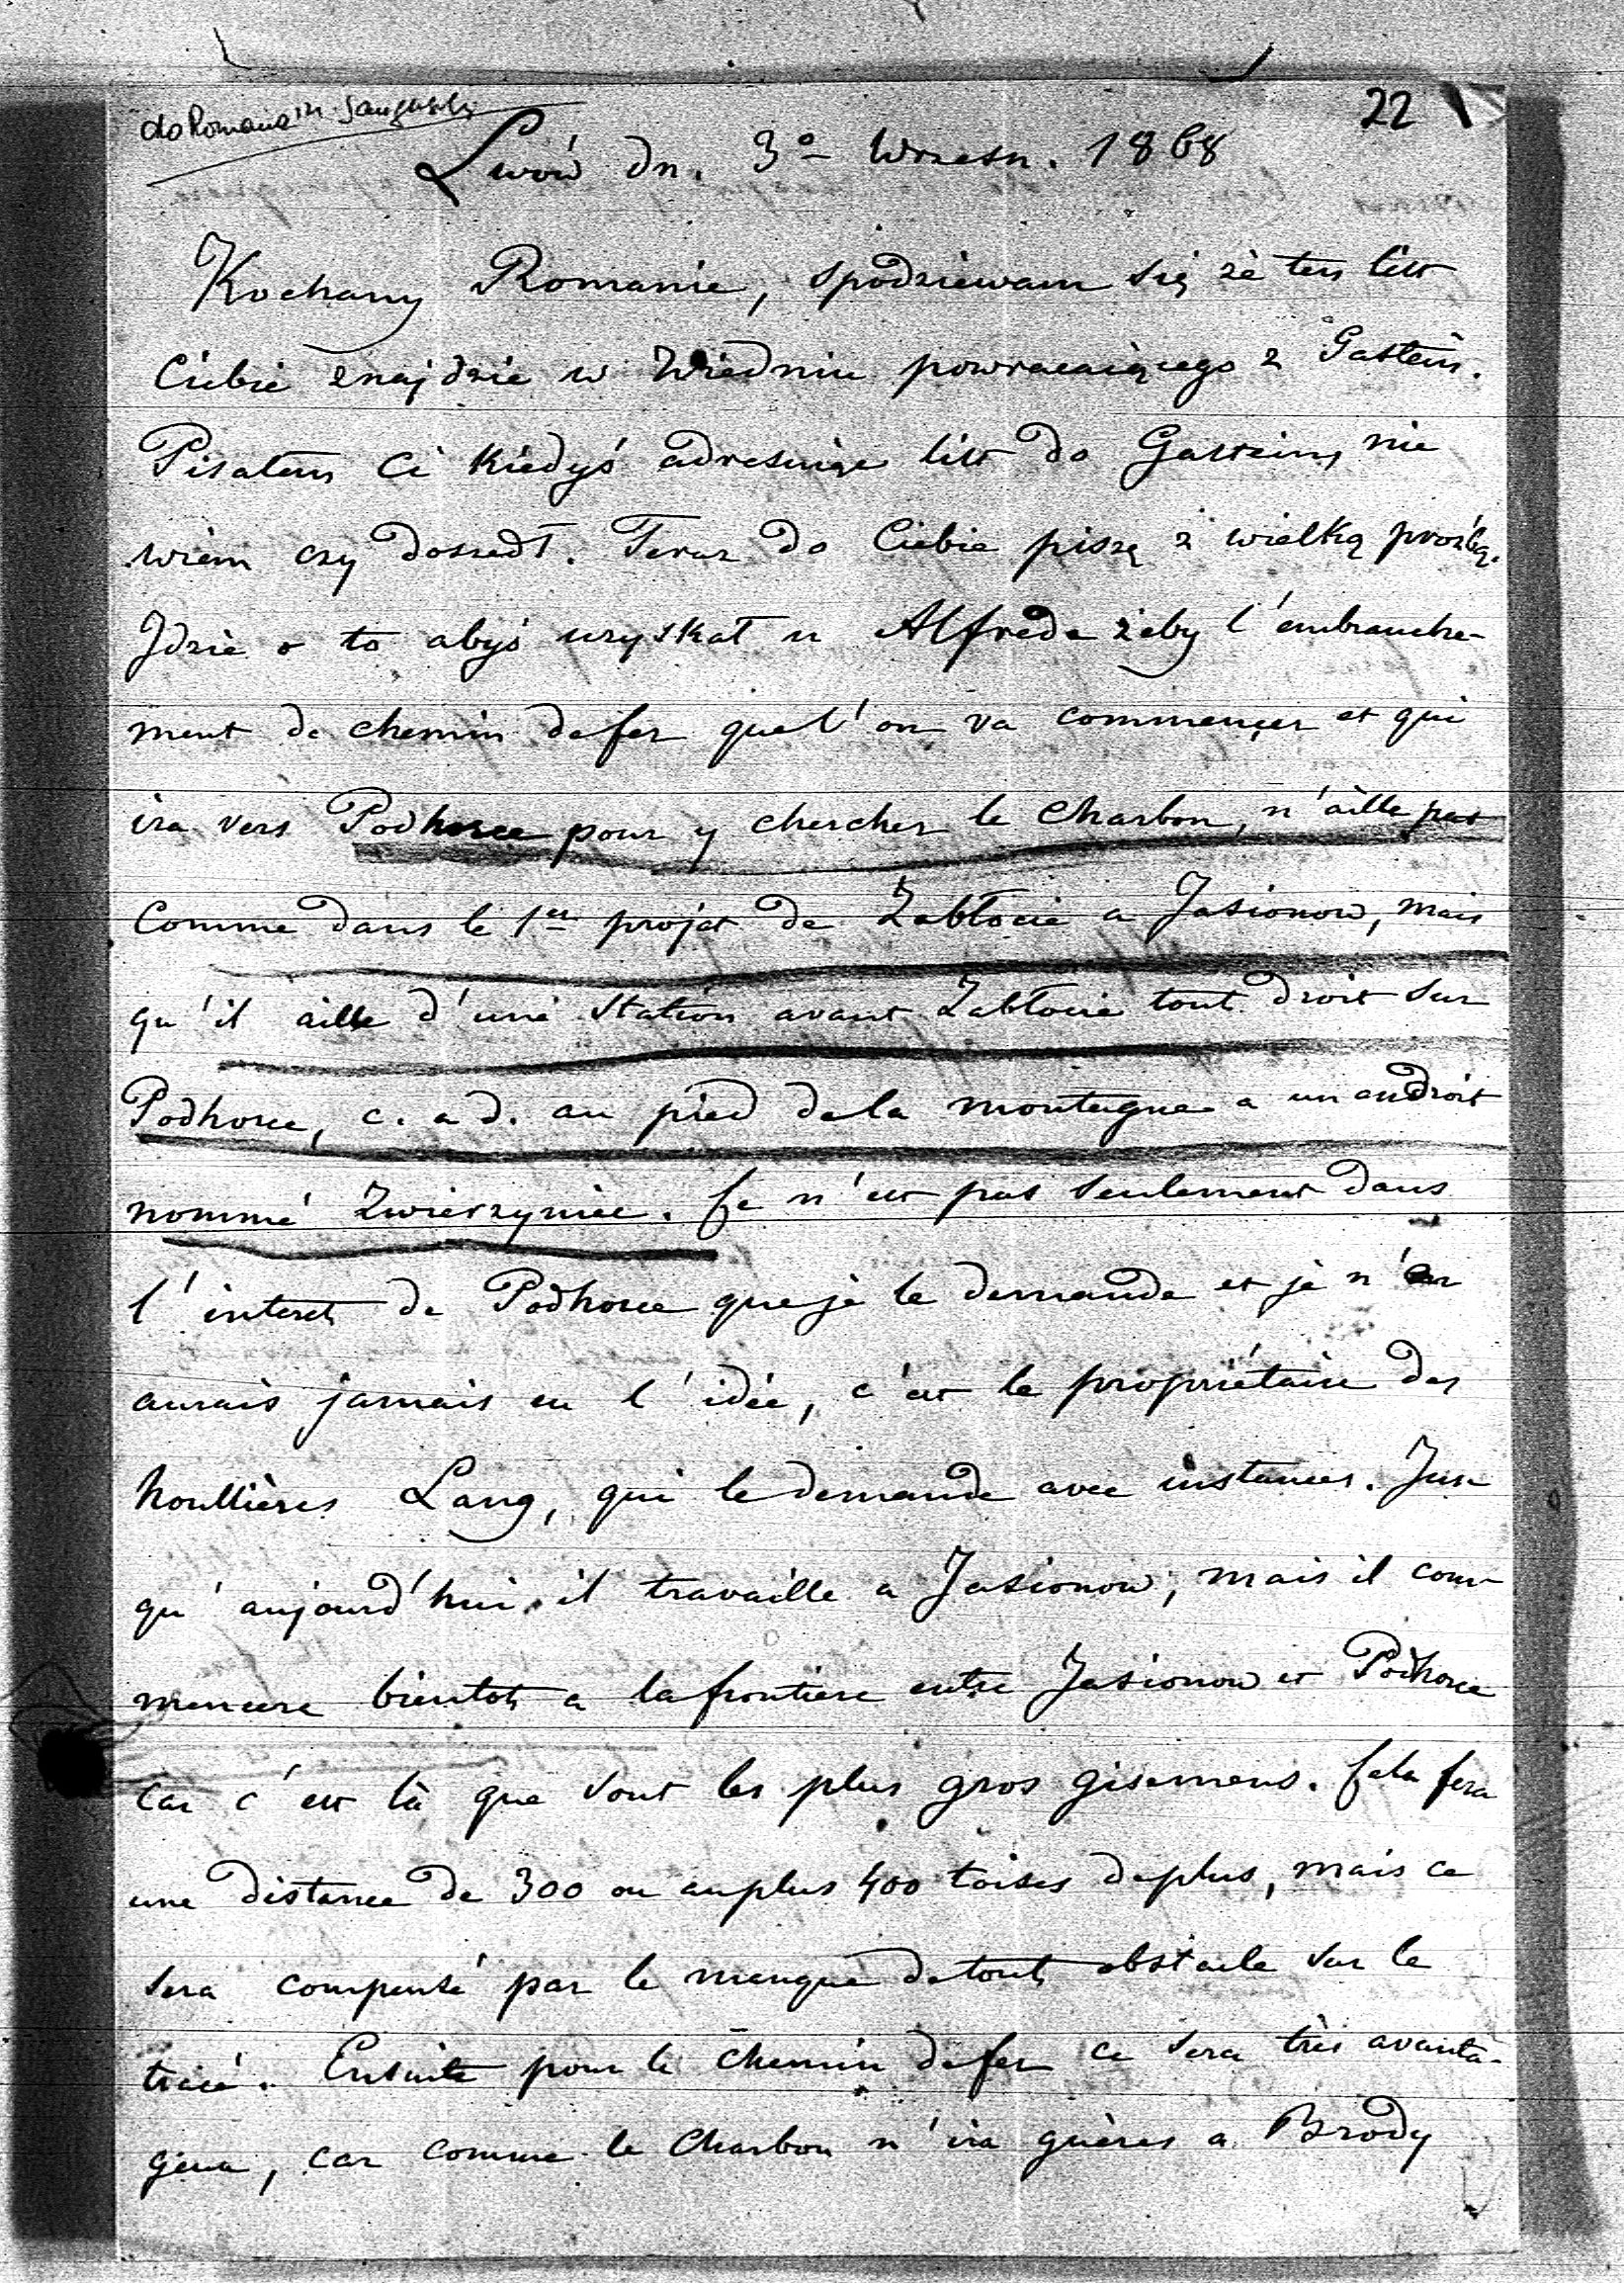 do Romana Sanguszki
22
Lwów dn. 3º Wrzesn. 1868
Kochany Romanie, spodziewam się że ten list
Ciebie znajdzie w Wiedniu powracaiącego z Gastein.
Pisałem Ci kiedyś adresuiąc list do Gastein, nie
wiem czy doszedł. Teraz do Ciebie piszę z wielką prożbą.
Jdzie o to abyś uzyskał u Alfreda żeby l'embranche-
ment de chemin de fer que l'on va commençer et qui
ira vers Podhorce pour y chercher le charbon, n'aille pas
comme dans le 1er projet de Zabłocie a Jasionow, mais
qu'il aille d'une station avant Zabłocie tout droit sur
Podhorce, c. a d. au pied de la montagne a un endroit
nommé Zwierzyniec. Ce n'est pas seulement dans
l'interet de Podhorce que je le demande et je n'en
aurais jamais eu l'idée, c'est le propriétaire des
houllières Lang, qui le demande avec instances. Jus
qu'aujourd'hui il travaille a Jasionow, mais il com-
mencera bientot a la frontiere entre Jasionow et Podhorce
car c'est là que sont les plus gros gisemens. Cela fera
une distance de 300 ou au plus 400 toises de plus, mais ce
sera compensé par le manque de tout obstacle sur le
tracé. Ensuite pour le chemin de fer ce sera très avanta-
geux, car comme le Charbon n'ira guères a Brody